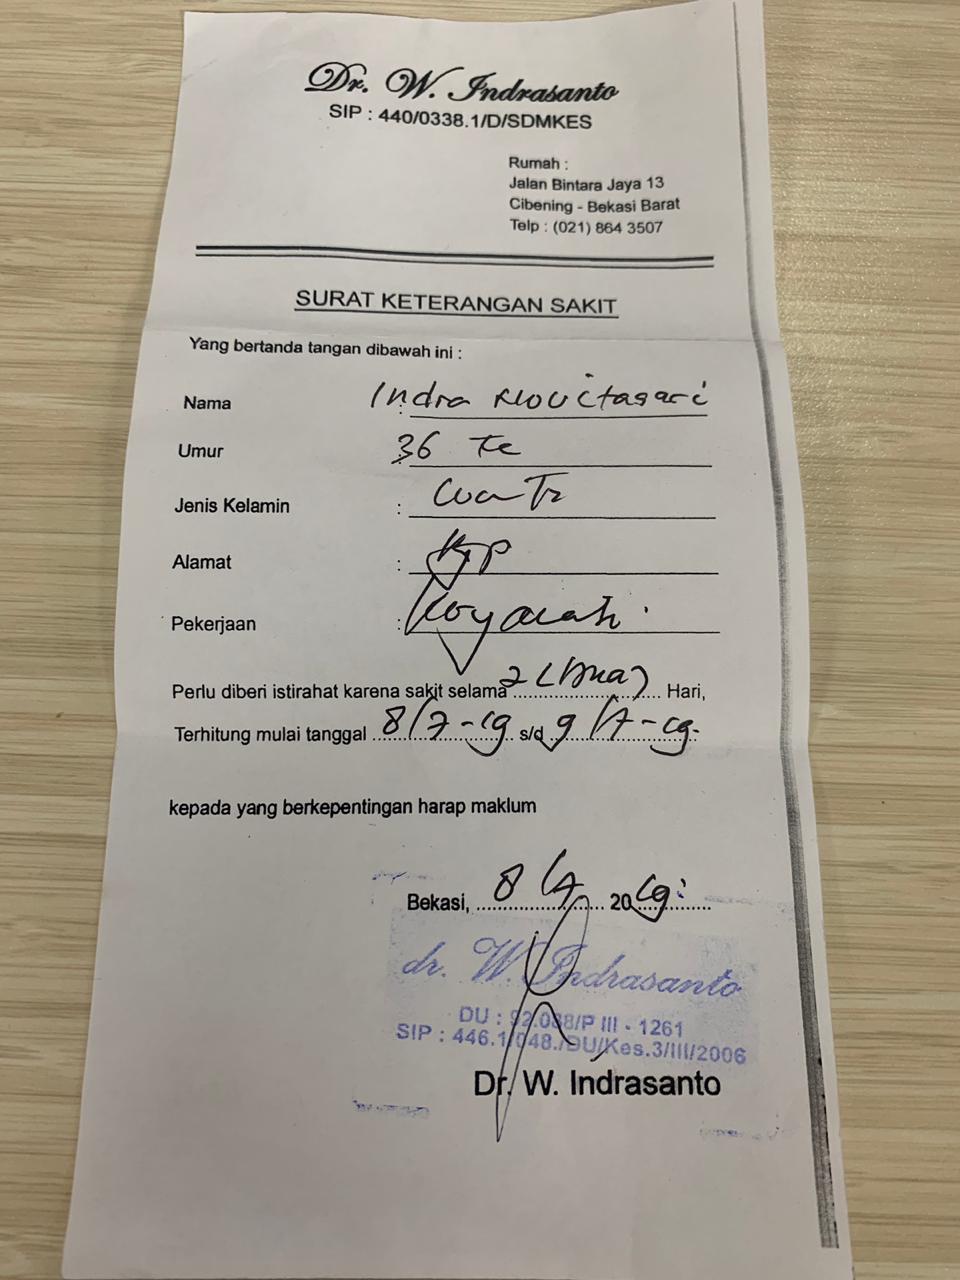 Dr. W. Indrasanto
SIP : 440/0338.1/D/SDMKES
Rumah :
Jalan Bintara Jaya 13
Cibening - Bekasi Barat
Telp : (021) 864 3507
SURAT KETERANGAN SAKIT
Yang bertanda tangan dibawah ini :
Nama : Indra Novitasari
Umur : 36
Jenis Kelamin :
Alamat :
Pekerjaan :
Perlu diberi istirahat karena sakit selama 2 (Dua) Hari,
Terhitung mulai tanggal 8/7-19 s/d 9/7-19.
kepada yang berkepentingan harap maklum
Bekasi, 8/7 2019
dr. W. Indrasanto
DU : 92.088/P III - 1261
SIP : 446.1/048./DU/Kes.3/III/2006
Dr. W. Indrasanto